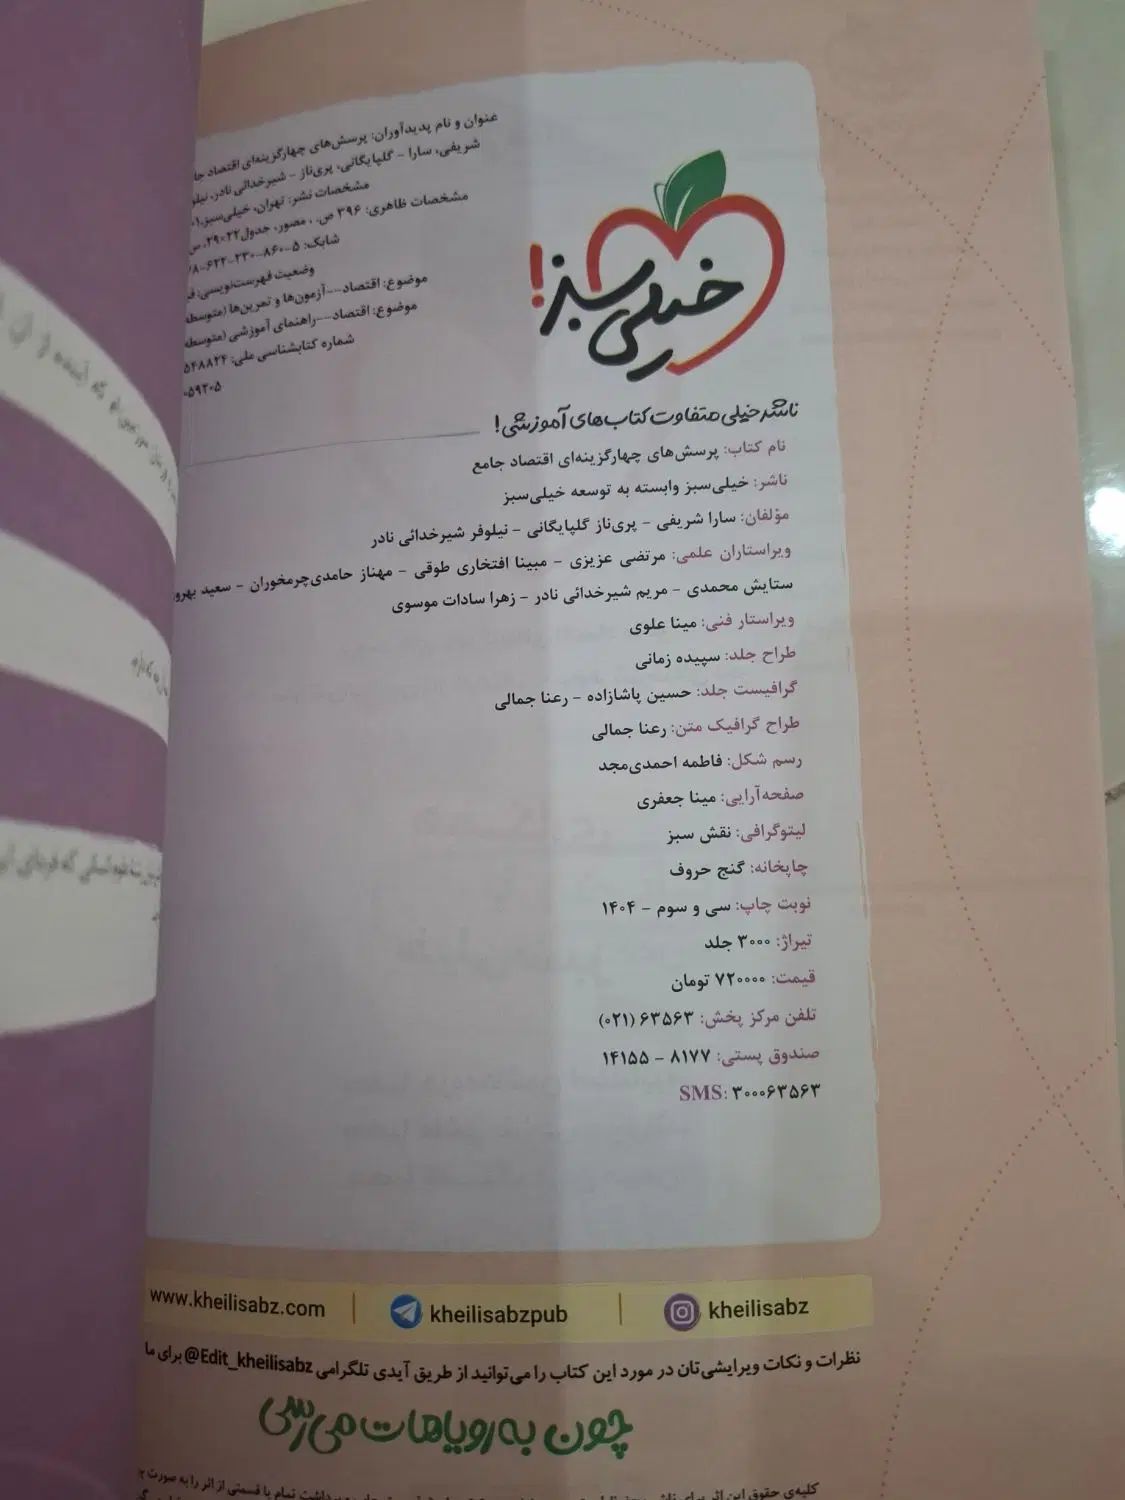 عنوان و نام پدیدآوران: پرسش‌های چهارگزینه‌ای اقتصاد
شریفی، سارا - گلپایگانی، پری‌ناز - شیرخدائی نادر،
مشخصات نشر: تهران، خیلی‌سبز،
مشخصات ظاهری: ۳۹۶ ص.، مصور، جدول ۲۲×۲۹،
شابک: ۵-۸۶۰-۲۳۰-۶۲۲-
وضعیت فهرست‌نویسی:
موضوع: اقتصاد--آزمون‌ها و تمرین‌ها (متوسطه
موضوع: اقتصاد--راهنمای آموزشی (متوسطه
شماره کتابشناسی ملی:
خیلی سبز!
ناشر خیلی متفاوت کتاب‌های آموزشی!
نام کتاب: پرسش‌های چهارگزینه‌ای اقتصاد جامع
ناشر: خیلی‌سبز وابسته به توسعه خیلی‌سبز
مؤلفان: سارا شریفی - پری‌ناز گلپایگانی - نیلوفر شیرخدائی نادر
ویراستاران علمی: مرتضی عزیزی - مبینا افتخاری طوقی - مهناز حامدی‌چرمخوران - سعید
ستایش محمدی - مریم شیرخدائی نادر - زهرا سادات موسوی
ویراستار فنی: مینا علوی
طراح جلد: سپیده زمانی
گرافیست جلد: حسین پاشازاده - رعنا جمالی
طراح گرافیک متن: رعنا جمالی
رسم شکل: فاطمه احمدی‌مجد
صفحه‌آرایی: مینا جعفری
لیتوگرافی: نقش سبز
چاپخانه: گنج حروف
نوبت چاپ: سی و سوم - ۱۴۰۴
تیراژ: ۳۰۰۰ جلد
قیمت: ۷۲۰۰۰۰ تومان
تلفن مرکز پخش: ۶۳۵۶۳ (۰۲۱)
صندوق پستی: ۸۱۷۷ - ۱۴۱۵۵
SMS: ۳۰۰۰۶۳۵۶۳
www.kheilisabz.com | kheilisabzpub | kheilisabz
نظرات و نکات ویرایشی‌تان در مورد این کتاب را می‌توانید از طریق آیدی تلگرامی Edit_kheilisabz@ برای ما
چون به رویاهات می‌رسی
کلیه‌ی حقوق این اثر برای
تمام یا قسمتی از اثر را به صورت